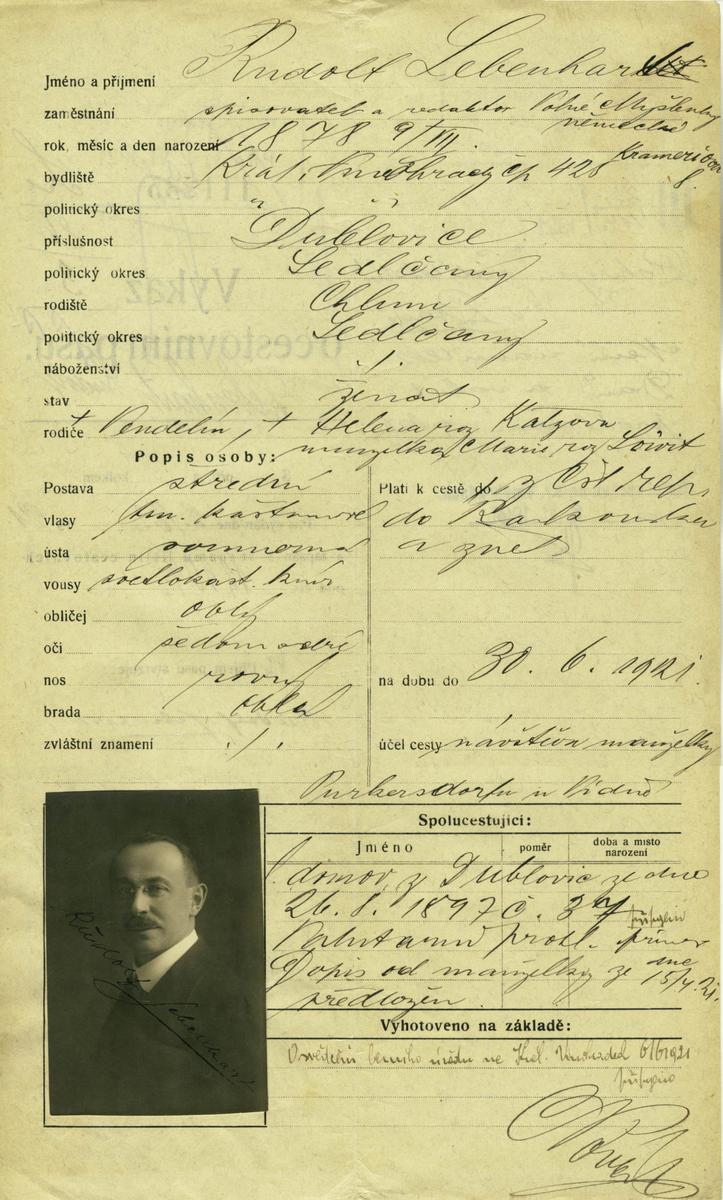 Jméno a příjmení Rudolf Lebenhart
zaměstnání spisovatel a redaktor Volné Myšlenky
německé
rok, měsíc a den narození 1878 9/III.
bydliště Král. Vinohrady čp 428 Krameriova
8.
politický okres " "
příslušnost Dublovice
politický okres Sedlčany
rodiště Chlum
politický okres Sedlčany
náboženství ./.
stav ženat
rodiče + Vendelín, + Helena roz Katzova
manželka Marie roz Löwit
Popis osoby:
Postava střední
vlasy tm. kaštanové
ústa souměrná
vousy světlokašt. knír
obličej oblý
oči šedomodré
nos rovný
brada oblá
zvláštní znamení ./.
Platí k cestě do z Čsl rep.
do Rakouska
a zpět
na dobu do 30. 6. 1921.
účel cesty návštěva manželky
Purkersdorfu u Vídně
Spolucestující:
Jméno poměr doba a místo narození
domov. z Dublovic ze dne
26. 8. 1897 č. 37
Dopis od manželky ze dne 15/4. 21.
předložen.
Vyhotoveno na základě:
Osvědčení berního úřadu na Král. Vinohradech 6/6 1921
Rudolf Lebenhart